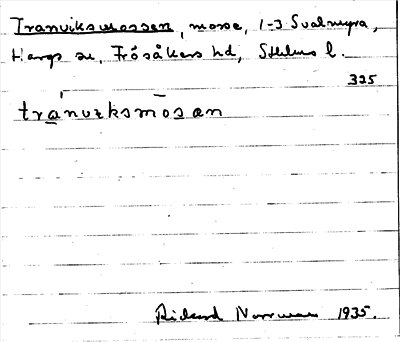 Tranviksmossen, mosse, 1-3 Svalmyra,
Hargs sn, Frösåkers hd, Sthlms l.
335
tranvıksmosan
Rickard Norrman 1935.